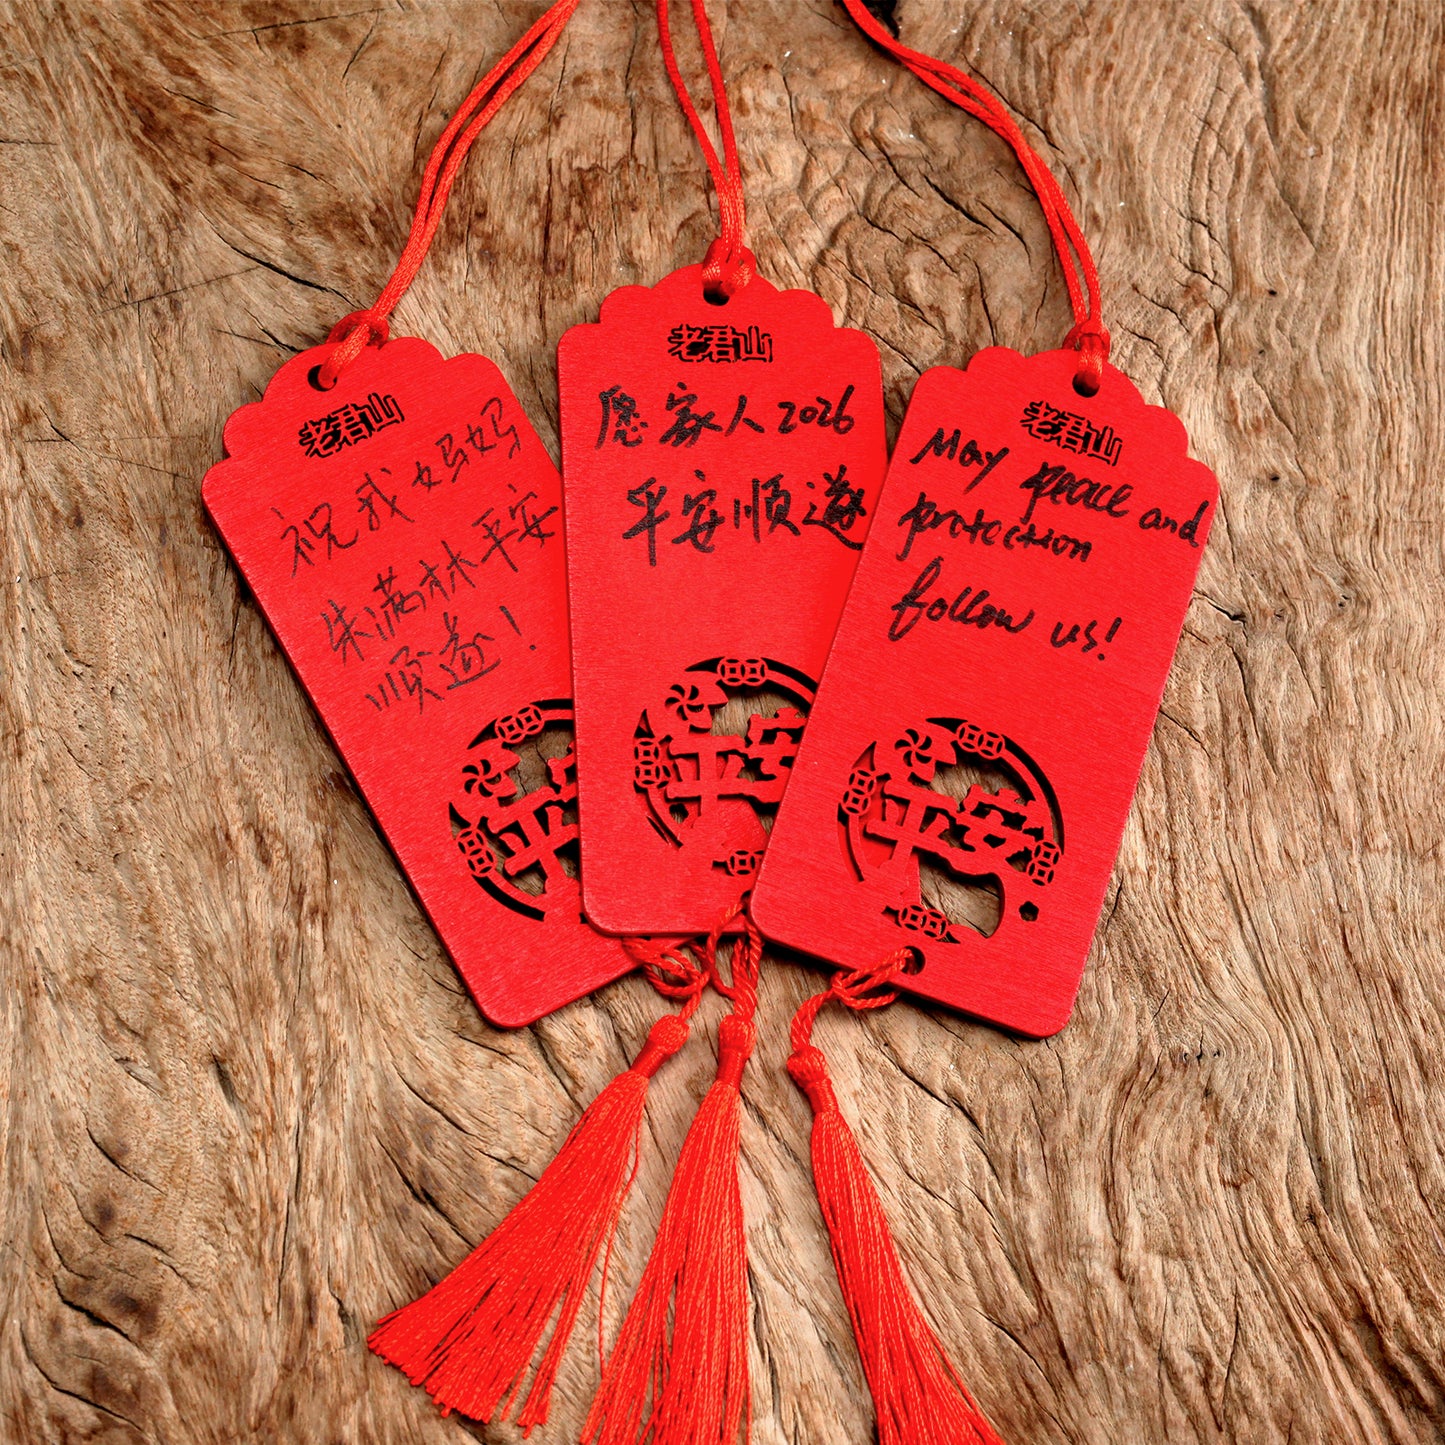 老君山
祝我妈妈
朱满林平安
顺遂！
平安
老君山
愿家人2026
平安顺遂
平安
老君山
May peace and
protection
follow us!
平安